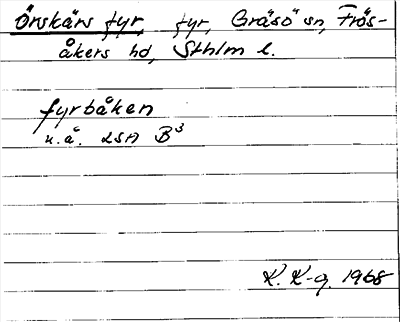 Örskärs fyr, fyr, Gräsö sn, Frös-
åkers hd, Sthlm l.
fyrbåken
u.å. LSA B³
K. K-g. 1968